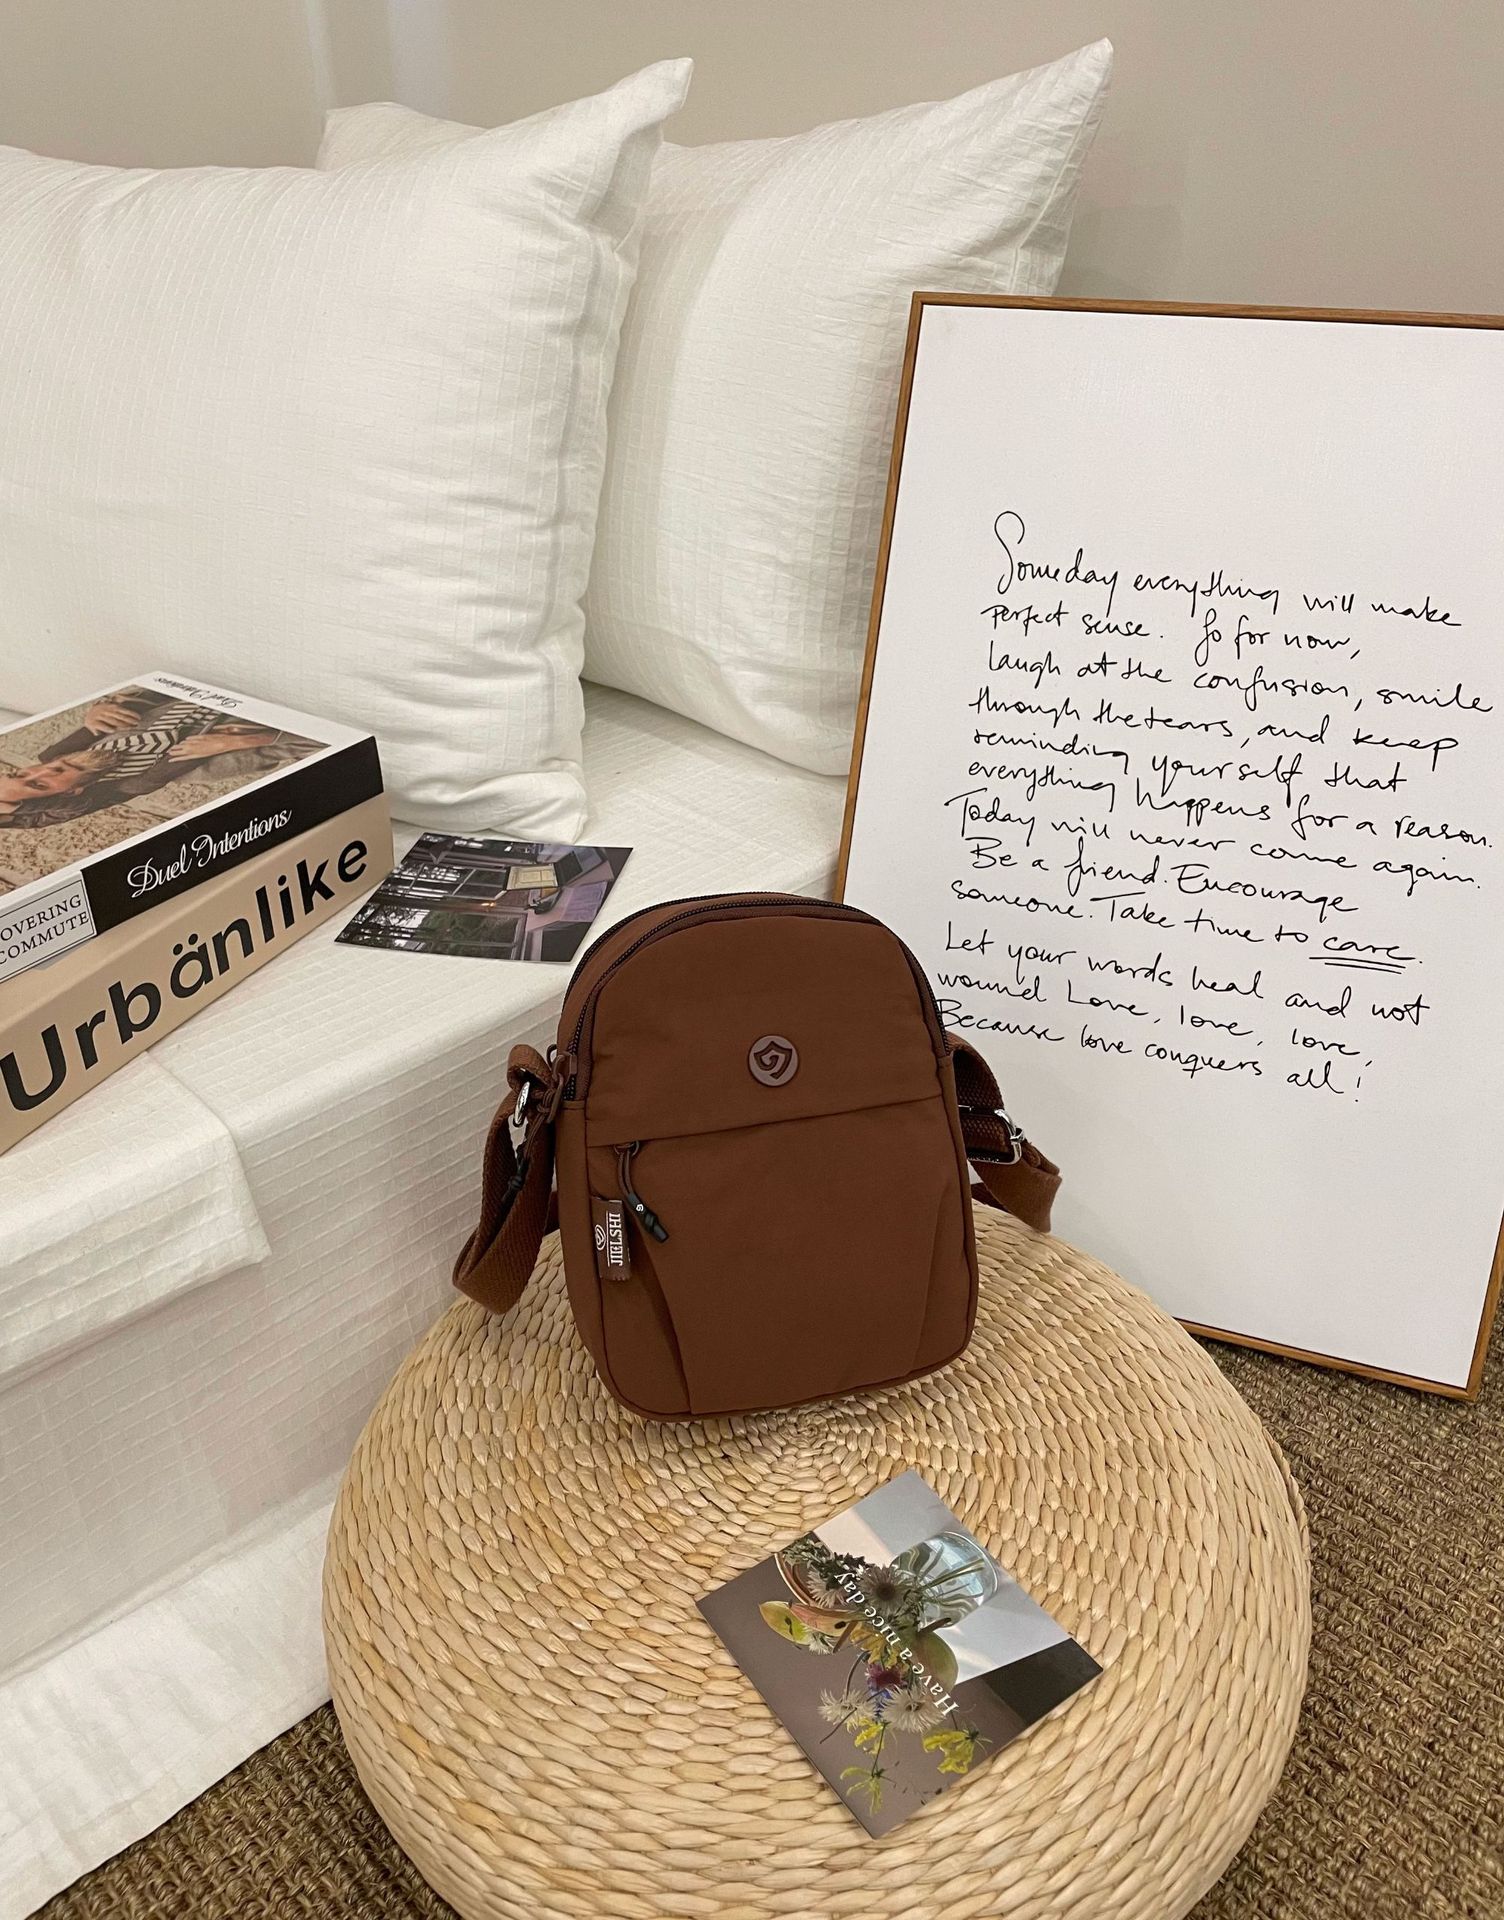 Someday everything will make
perfect sense. So for now,
laugh at the confusion, smile
through the tears, and keep
reminding yourself that
everything happens for a reason.
Today will never come again.
Be a friend. Encourage
someone. Take time to care.
Let your words heal and not
wound Love, love, love,
Because love conquers all!
Duel Intentions
Duel Intentions
OVERING
COMMUTE
Urbänlike
JIELSHI
Have a nice day